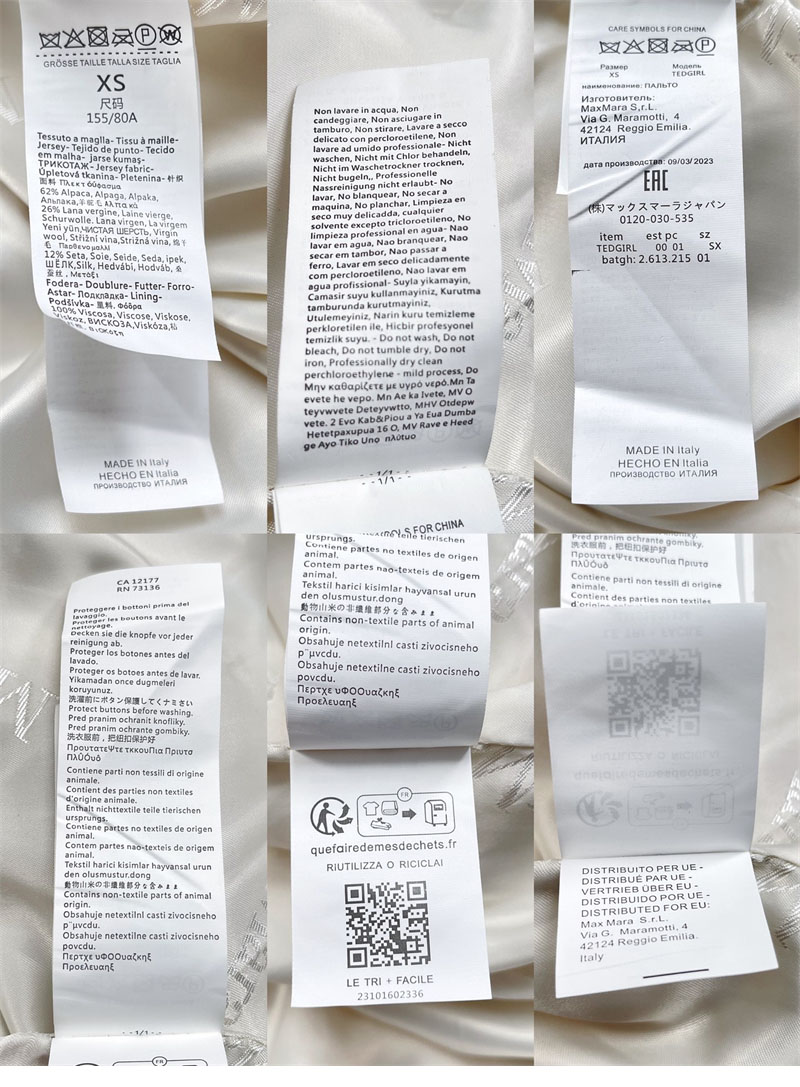 GRÖSSE TAILLE TALLA SIZE TAGLIA
XS
尺码
155/80A
Tessuto a maglla- Tissu à maille-
Jersey- Tejido de punto- Tecido
em malha- jarse kumaş-
ТРИКОТАЖ- Jersey fabric-
Úpletová tkanina- Pletenina- 针织
面料 Πλεκτ όύφασμα
62% Alpaca, Alpaga, Alpaka,
Альпака,羊驼毛 Αλπτά κά
26% Lana vergine, Laine vierge,
Schurwolle. Lana virgen, La virgem
Yeni yün,ЧИСТАЯ ШЕРСТЬ, Virgin
wool, Střižní vlna,Strižná vlna, 绵羊
毛 Παρθενο μαλλί
12% Seta, Soie, Seide, Seda, ipek,
ШЁЛК,Silk, Hedvábi, Hodváb, 桑
蚕丝, Μετάξι
Fodera- Doublure- Futter- Forro-
Astar- Подкладка- Lining-
Podšívka- 里料, Φόδρα
100% Viscosa, Viscose, Viskose,
Viskoz, ВИСКОЗА, Viskóza,粘
MADE IN Italy
HECHO EN Italy
ПРОИЗВОДСТВО ИТАЛИЯ
Non lavare in acqua, Non
candeggiare, Non asciugare in
tamburo, Non stirare, Lavare a secco
delicato con percloroetilene, Non
lavare ad umido professionale- Nicht
waschen, Nicht mit Chlor behandeln,
Nicht im Waschetrockner trocknen,
Nicht bugeln,, Professionelle
Nassreinigung nicht erlaubt- No
lavar, No blanquear, No secar a
maquina, No planchar, Limpieza en
seco muy delicada, cualquier
solvente excepto tricloroetileno, No
limpieza professional en agua- Nao
lavar em agua, Nao branquear, Nao
secar em tambor, Nao passar a
ferro, Lavar em seco delicadamente
com percloroetileno, Nao lavar em
agua profissional- Suyla yikamayin,
Camasir suyu kullanmayiniz, Kurutma
tamburunda kurutmayiniz,
Utulemeyiniz, Narin kuru temizleme
perkloretilen ile, Hicbir profesyonel
temizlik suyu. - Do not wash, Do not
bleach, Do not tumble dry, Do not
iron, Professionally dry clean
perchloroethylene - mild process, Do
Μην καθαρίζετε με υγρό νερό.Μη Ta
evete he vepo. Mn Ae ka Ivete, MV O
teyvwvete Deteyvwtto, MHV Otdepw
vete. 2 Evo Kab&Piou a Ya Eua Dumba
Hetetpaxupua 16 O, MV Rave e Heed
ge Ayo Tiko Uno πλύτυο
- -1/1- -
-1/1- -
OLS FOR CHINA
CARE SYMBOLS FOR CHINA
Размер Модель
XS TEDGIRL
наименование: ПАЛЬТО
Изготовитель:
MaxMara S,r.L.
Via G. Maramotti, 4
42124 Reggio Emilia.
ИТАЛИЯ
дата производства: 09/03/2023
EAC
(株)マックスマーラジャパン
0120-030-535
item est pc sz
TEDGIRL 00 01 SX
batgh: 2.613.215 01
MADE IN Italy
HECHO EN Italy
ПРОИЗВОДСТВО ИТАЛИЯ
CA 12177
RN 73136
Proteggere i bottoni prima del
lavaggio.
Protéger les boutons avant le
nettoyage.
Decken sie die knopfe vor jeder
reinigung ab.
Proteger los botones antes del
lavado.
Proteger os botoes antes de lavar.
Yikamadan once dugmeleri
koruyunuz.
洗濯前にボタン保護してくナミさい
Protect buttons before washing.
Pred pranim ochranit knofliky.
Pred pranim ochrante gombiky.
洗衣服前，把纽扣保护好
ΠρουτατεΨτε τκκουΠια Πριυτσ
ΠλÛÒυδ
Contiene parti non tessili di origine
animale.
Contient des parties non textiles
d'origine animale.
Enthalt nichttextile teile tierischen
ursprungs.
Contiene partes no textiles de origen
animal.
Contem partes nao-texteis de origem
animal.
Tekstil harici kisimlar hayvansal urun
den olusmustur.dong
動物山米の非纖維部分な含みまま
Contains non-textile parts of animal
origin.
Obsahuje netextilnl casti zivocisneho
p¨μvcdu.
Obsahuje netextilne casti zivocisneho
povcdu.
Περτχε υΦΟΟυαζκηξ
Προελευαηξ
-1/1-
FR
ursprungs.
Contiene partes no textiles de origen
animal.
Contem partes nao-texteis de origem
animal.
Tekstil harici kisimlar hayvansal urun
den olusmustur.dong
動物山米の非纖維部分な含みまま
Contains non-textile parts of animal
origin.
Obsahuje netextilnl casti zivocisneho
p¨μvcdu.
Obsahuje netextilne casti zivocisneho
povcdu.
Περτχε υΦΟΟυαζκηξ
Προελευαηξ
FR
quefairedemesdechets.fr
RIUTILIZZA O RICICLAI
LE TRI + FACILE
23101602336
Pred pranim ochrante gombiky.
洗衣服前，把纽扣保护好
ΠρουτατεΨτε τκκουΠια Πριυτσ
ΠλÛÒυδ
Contiene parti non tessili di origine
animale.
Contient des parties non textiles
d'origine animale.
LE TRI + FACILE
RIUTILIZZA O RICICLAI
quefairedemesdechets.fr
DISTRIBUITO PER UE -
DISTRIBUÉ PAR UE -
VERTRIEB ÜBER EU -
DISTRIBUIDO POR UE -
DISTRIBUTED FOR EU:
Max Mara S.r.L.
Via G. Maramotti, 4
42124 Reggio Emilia.
Italy